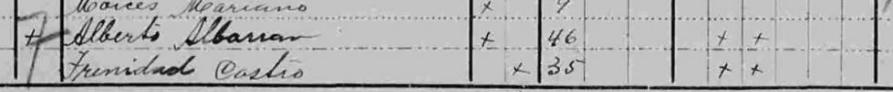 Moices Mariano + 9
+ 7 Alberto Albarran + 46 + +
Trinidad Castro + 35 + +